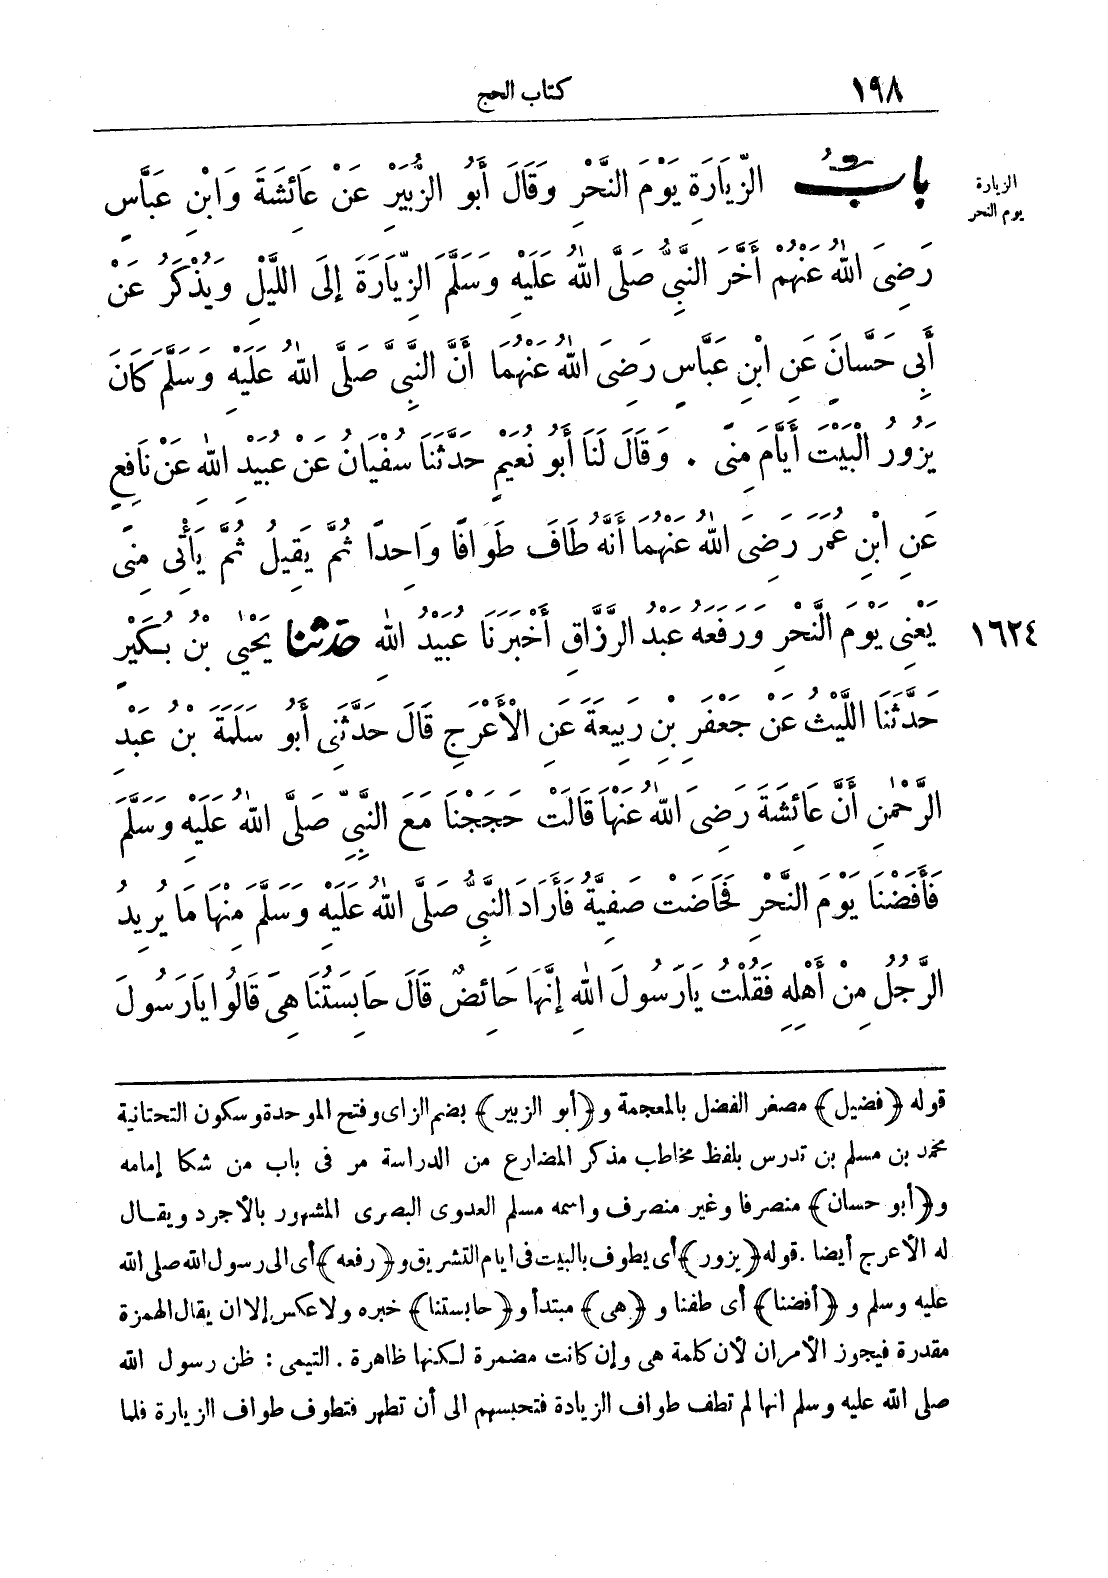 ١٩٨ كتاب الحج
الزيارة
يوم النحر
بَابُ الزِّيَارَةِ يَوْمَ النَّحْرِ وَقَالَ أَبُو الزُّبَيْرِ عَنْ عَائِشَةَ وَابْنِ عَبَّاسٍ
رَضِيَ اللَّهُ عَنْهُمْ أَخَّرَ النَّبِيُّ صَلَّى اللَّهُ عَلَيْهِ وَسَلَّمَ الزِّيَارَةَ إِلَى اللَّيْلِ وَيُذْكَرُ عَنْ
أَبِي حَسَّانَ عَنِ ابْنِ عَبَّاسٍ رَضِيَ اللَّهُ عَنْهُمَا أَنَّ النَّبِيَّ صَلَّى اللَّهُ عَلَيْهِ وَسَلَّمَ كَانَ
يَزُورُ الْبَيْتَ أَيَّامَ مِنًى . وَقَالَ لَنَا أَبُو نُعَيْمٍ حَدَّثَنَا سُفْيَانُ عَنْ عُبَيْدِ اللَّهِ عَنْ نَافِعٍ
عَنِ ابْنِ عُمَرَ رَضِيَ اللَّهُ عَنْهُمَا أَنَّهُ طَافَ طَوَافًا وَاحِدًا ثُمَّ يَقِيلُ ثُمَّ يَأْتِي مِنًى
١٦٢٤ يَعْنِي يَوْمَ النَّحْرِ وَرَفَعَهُ عَبْدُ الرَّزَّاقِ أَخْبَرَنَا عُبَيْدُ اللَّهِ حَدَّثَنَا يَحْيَى بْنُ بُكَيْرٍ
حَدَّثَنَا اللَّيْثُ عَنْ جَعْفَرِ بْنِ رَبِيعَةَ عَنِ الْأَعْرَجِ قَالَ حَدَّثَنِي أَبُو سَلَمَةَ بْنُ عَبْدِ
الرَّحْمٰنِ أَنَّ عَائِشَةَ رَضِيَ اللَّهُ عَنْهَا قَالَتْ حَجَجْنَا مَعَ النَّبِيِّ صَلَّى اللَّهُ عَلَيْهِ وَسَلَّمَ
فَأَفَضْنَا يَوْمَ النَّحْرِ فَحَاضَتْ صَفِيَّةُ فَأَرَادَ النَّبِيُّ صَلَّى اللَّهُ عَلَيْهِ وَسَلَّمَ مِنْهَا مَا يُرِيدُ
الرَّجُلُ مِنْ أَهْلِهِ فَقُلْتُ يَارَسُولَ اللَّهِ إِنَّهَا حَائِضٌ قَالَ حَابِسَتُنَا هِيَ قَالُوا يَارَسُولَ
قوله ﴿فضيل﴾ مصغر الفضل بالمعجمة و﴿أبو الزبير﴾ بضم الزاى وفتح الموحدة وسكون التحتانية
محمد بن مسلم بن تدرس بلفظ مخاطب مذكر المضارع من الدراسة مر فى باب من شكا إمامه
و﴿أبو حسان﴾ منصرفا وغير منصرف واسمه مسلم العدوى البصرى المشهور بالأجرد ويقال
له الأعرج أيضا . قوله ﴿يزور﴾ أى يطوف بالبيت فى ايام التشريق و﴿رفعه﴾ أى الى رسول الله صلى الله
عليه وسلم و ﴿أفضنا﴾ أى طفنا و ﴿هى﴾ مبتدأ و﴿حابستنا﴾ خبره ولا عكس إلا ان يقال الهمزة
مقدرة فيجوز الأمران لأن كلمة هى وإن كانت مضمرة لكنها ظاهرة . التيمى : ظن رسول الله
صلى الله عليه وسلم انها لم تطف طواف الزيادة فتحبسهم الى أن تطهر فتطوف طواف الزيارة فلما